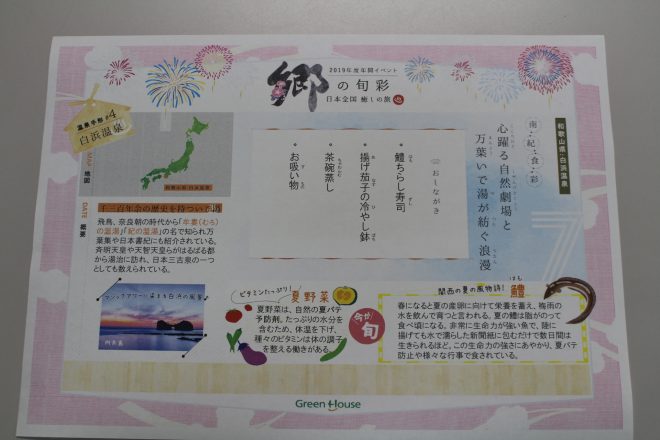 2019年度年間イベント
郷の旬彩
日本全国 癒しの旅
温泉手形 #4
白浜温泉
MAP 地図
和歌山県・白浜温泉
DATE 概要
千三百年余の歴史を持つ
飛鳥、奈良朝の時代から「牟婁(むろ)
の温湯」「紀の温湯」の名で知られ万
葉集や日本書紀にも紹介されている。
斉明天皇や天智天皇らがはるばる都
から湯治に訪れ、日本三古泉の一つ
としても数えられている。
マジックアワーに染まる白浜の風景♪
円月島
和歌山県・白浜温泉
南・紀・食・彩
心躍る自然劇場と
万葉いで湯が紡ぐ浪漫
おしながき
・鱧ちらし寿司
・揚げ茄子の冷やし鉢
・茶碗蒸し
・お吸い物
ビタミンたっぷり!
夏野菜
夏野菜は、自然の夏バテ
予防剤。たっぷりの水分を
含むため、体温を下げ、
種々のビタミンは体の調子
を整える働きがある。
今が旬
関西の夏の風物詩!
鱧
はも
春になると夏の産卵に向けて栄養を蓄え、梅雨の
水を飲んで育つと言われる。夏の鱧は脂がのって
食べ頃になる。非常に生命力が強い魚で、陸に
揚げても水で濡らした新聞紙に包むだけで数日間は
生きられるほど。この生命力の強さにあやかり、夏バテ
防止や様々な行事で食されている。
Green House